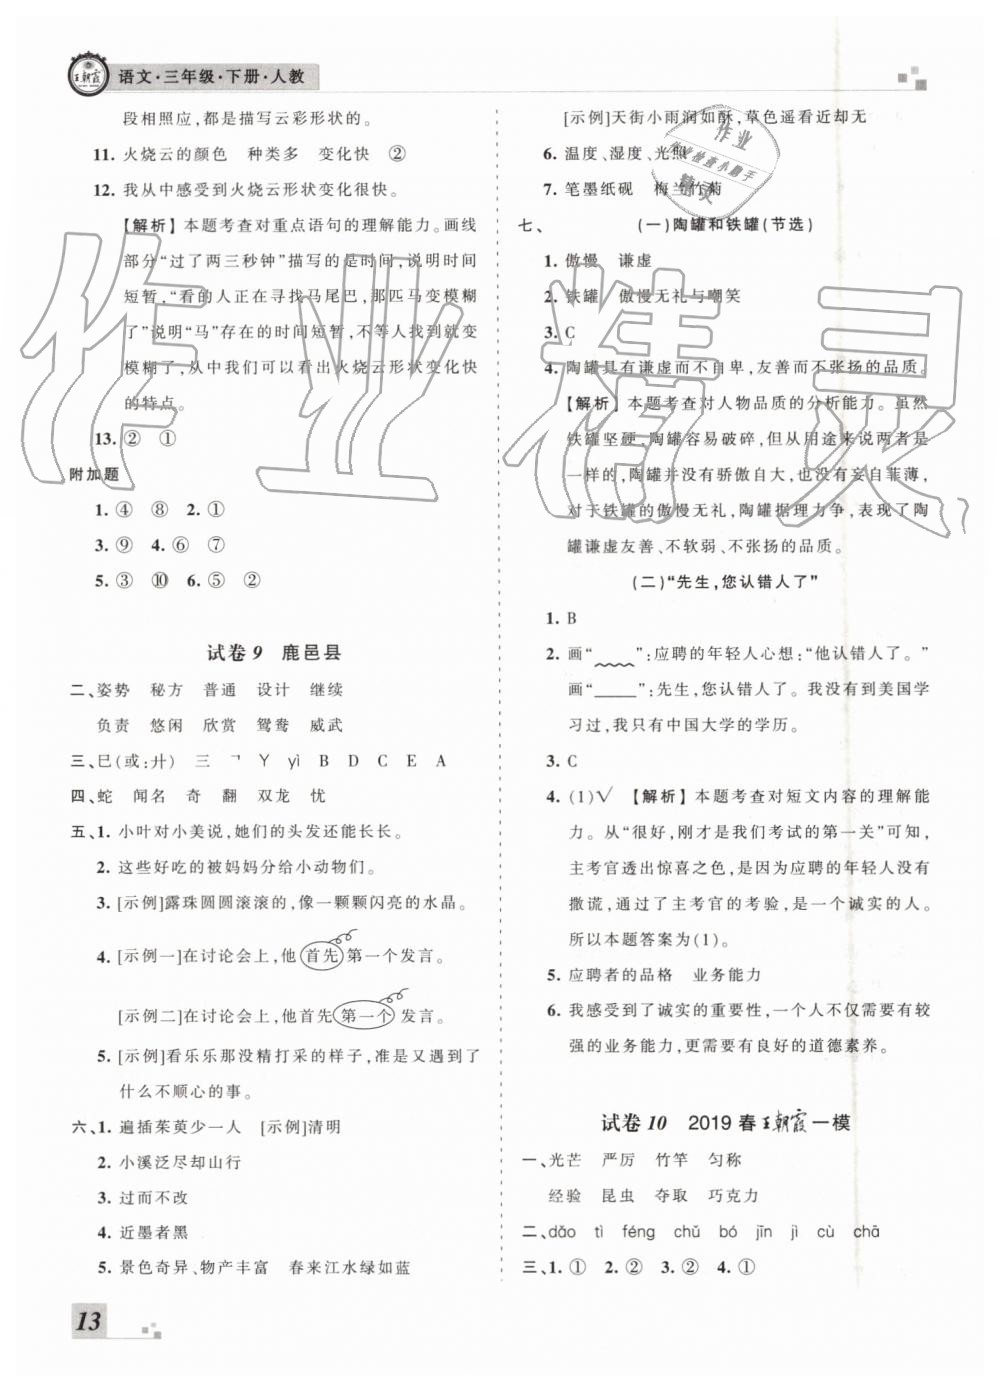 王朝霞
语文·三年级·下册·人教
段相照应,都是描写云彩形状的。
11. 火烧云的颜色 种类多 变化快 ②
12. 我从中感受到火烧云形状变化很快。
【解析】本题考查对重点语句的理解能力。画线
部分“过了两三秒钟”描写的是时间,说明时间
短暂,“看的人正在寻找马尾巴,那匹马变模糊
了”说明“马”存在的时间短暂,不等人找到就变
模糊了,从中我们可以看出火烧云形状变化快
的特点。
13. ② ①
附加题
1. ④ ⑧ 2. ①
3. ⑨ 4. ⑥ ⑦
5. ③ ⑩ 6. ⑤ ②
试卷9 鹿邑县
二、姿势 秘方 普通 设计 继续
负责 悠闲 欣赏 鸳鸯 威武
三、巳(或:廾) 三 ㇕ Y yì B D C E A
四、蛇 闻名 奇 翻 双龙 忧
五、1. 小叶对小美说,她们的头发还能长长。
2. 这些好吃的被妈妈分给小动物们。
3. [示例]露珠圆圆滚滚的,像一颗颗闪亮的水晶。
4. [示例一]在讨论会上,他首先第一个发言。
[示例二]在讨论会上,他首先第一个发言。
5. [示例]看乐乐那没精打采的样子,准是又遇到了
什么不顺心的事。
六、1. 遍插茱萸少一人 [示例]清明
2. 小溪泛尽却山行
3. 过而不改
4. 近墨者黑
5. 景色奇异、物产丰富 春来江水绿如蓝
[示例]天街小雨润如酥,草色遥看近却无
6. 温度、湿度、光照
7. 笔墨纸砚 梅兰竹菊
七、 (一)陶罐和铁罐(节选)
1. 傲慢 谦虚
2. 铁罐 傲慢无礼与嘲笑
3. C
4. 陶罐具有谦虚而不自卑,友善而不张扬的品质。
【解析】本题考查对人物品质的分析能力。虽然
铁罐坚硬,陶罐容易破碎,但从用途来说两者是
一样的,陶罐并没有骄傲自大,也没有妄自菲薄,
对于铁罐的傲慢无礼,陶罐据理力争,表现了陶
罐谦虚友善、不软弱、不张扬的品质。
(二)“先生,您认错人了”
1. B
2. 画“﹏﹏”:应聘的年轻人心想:“他认错人了。”
画“____”:先生,您认错人了。我没有到美国学
习过,我只有中国大学的学历。
3. C
4. (1)√ 【解析】本题考查对短文内容的理解能
力。从“很好,刚才是我们考试的第一关”可知,
主考官透出惊喜之色,是因为应聘的年轻人没有
撒谎,通过了主考官的考验,是一个诚实的人。
所以本题答案为(1)。
5. 应聘者的品格 业务能力
6. 我感受到了诚实的重要性,一个人不仅需要有较
强的业务能力,更需要有良好的道德素养。
试卷10 2019春王朝霞一模
一、光芒 严厉 竹竿 匀称
经验 昆虫 夺取 巧克力
二、dǎo tì féng chǔ bó jīn jì cù chā
三、1. ① 2. ② 3. ② 4. ①
13
作业精灵
作业
作业检查小助手
精灵